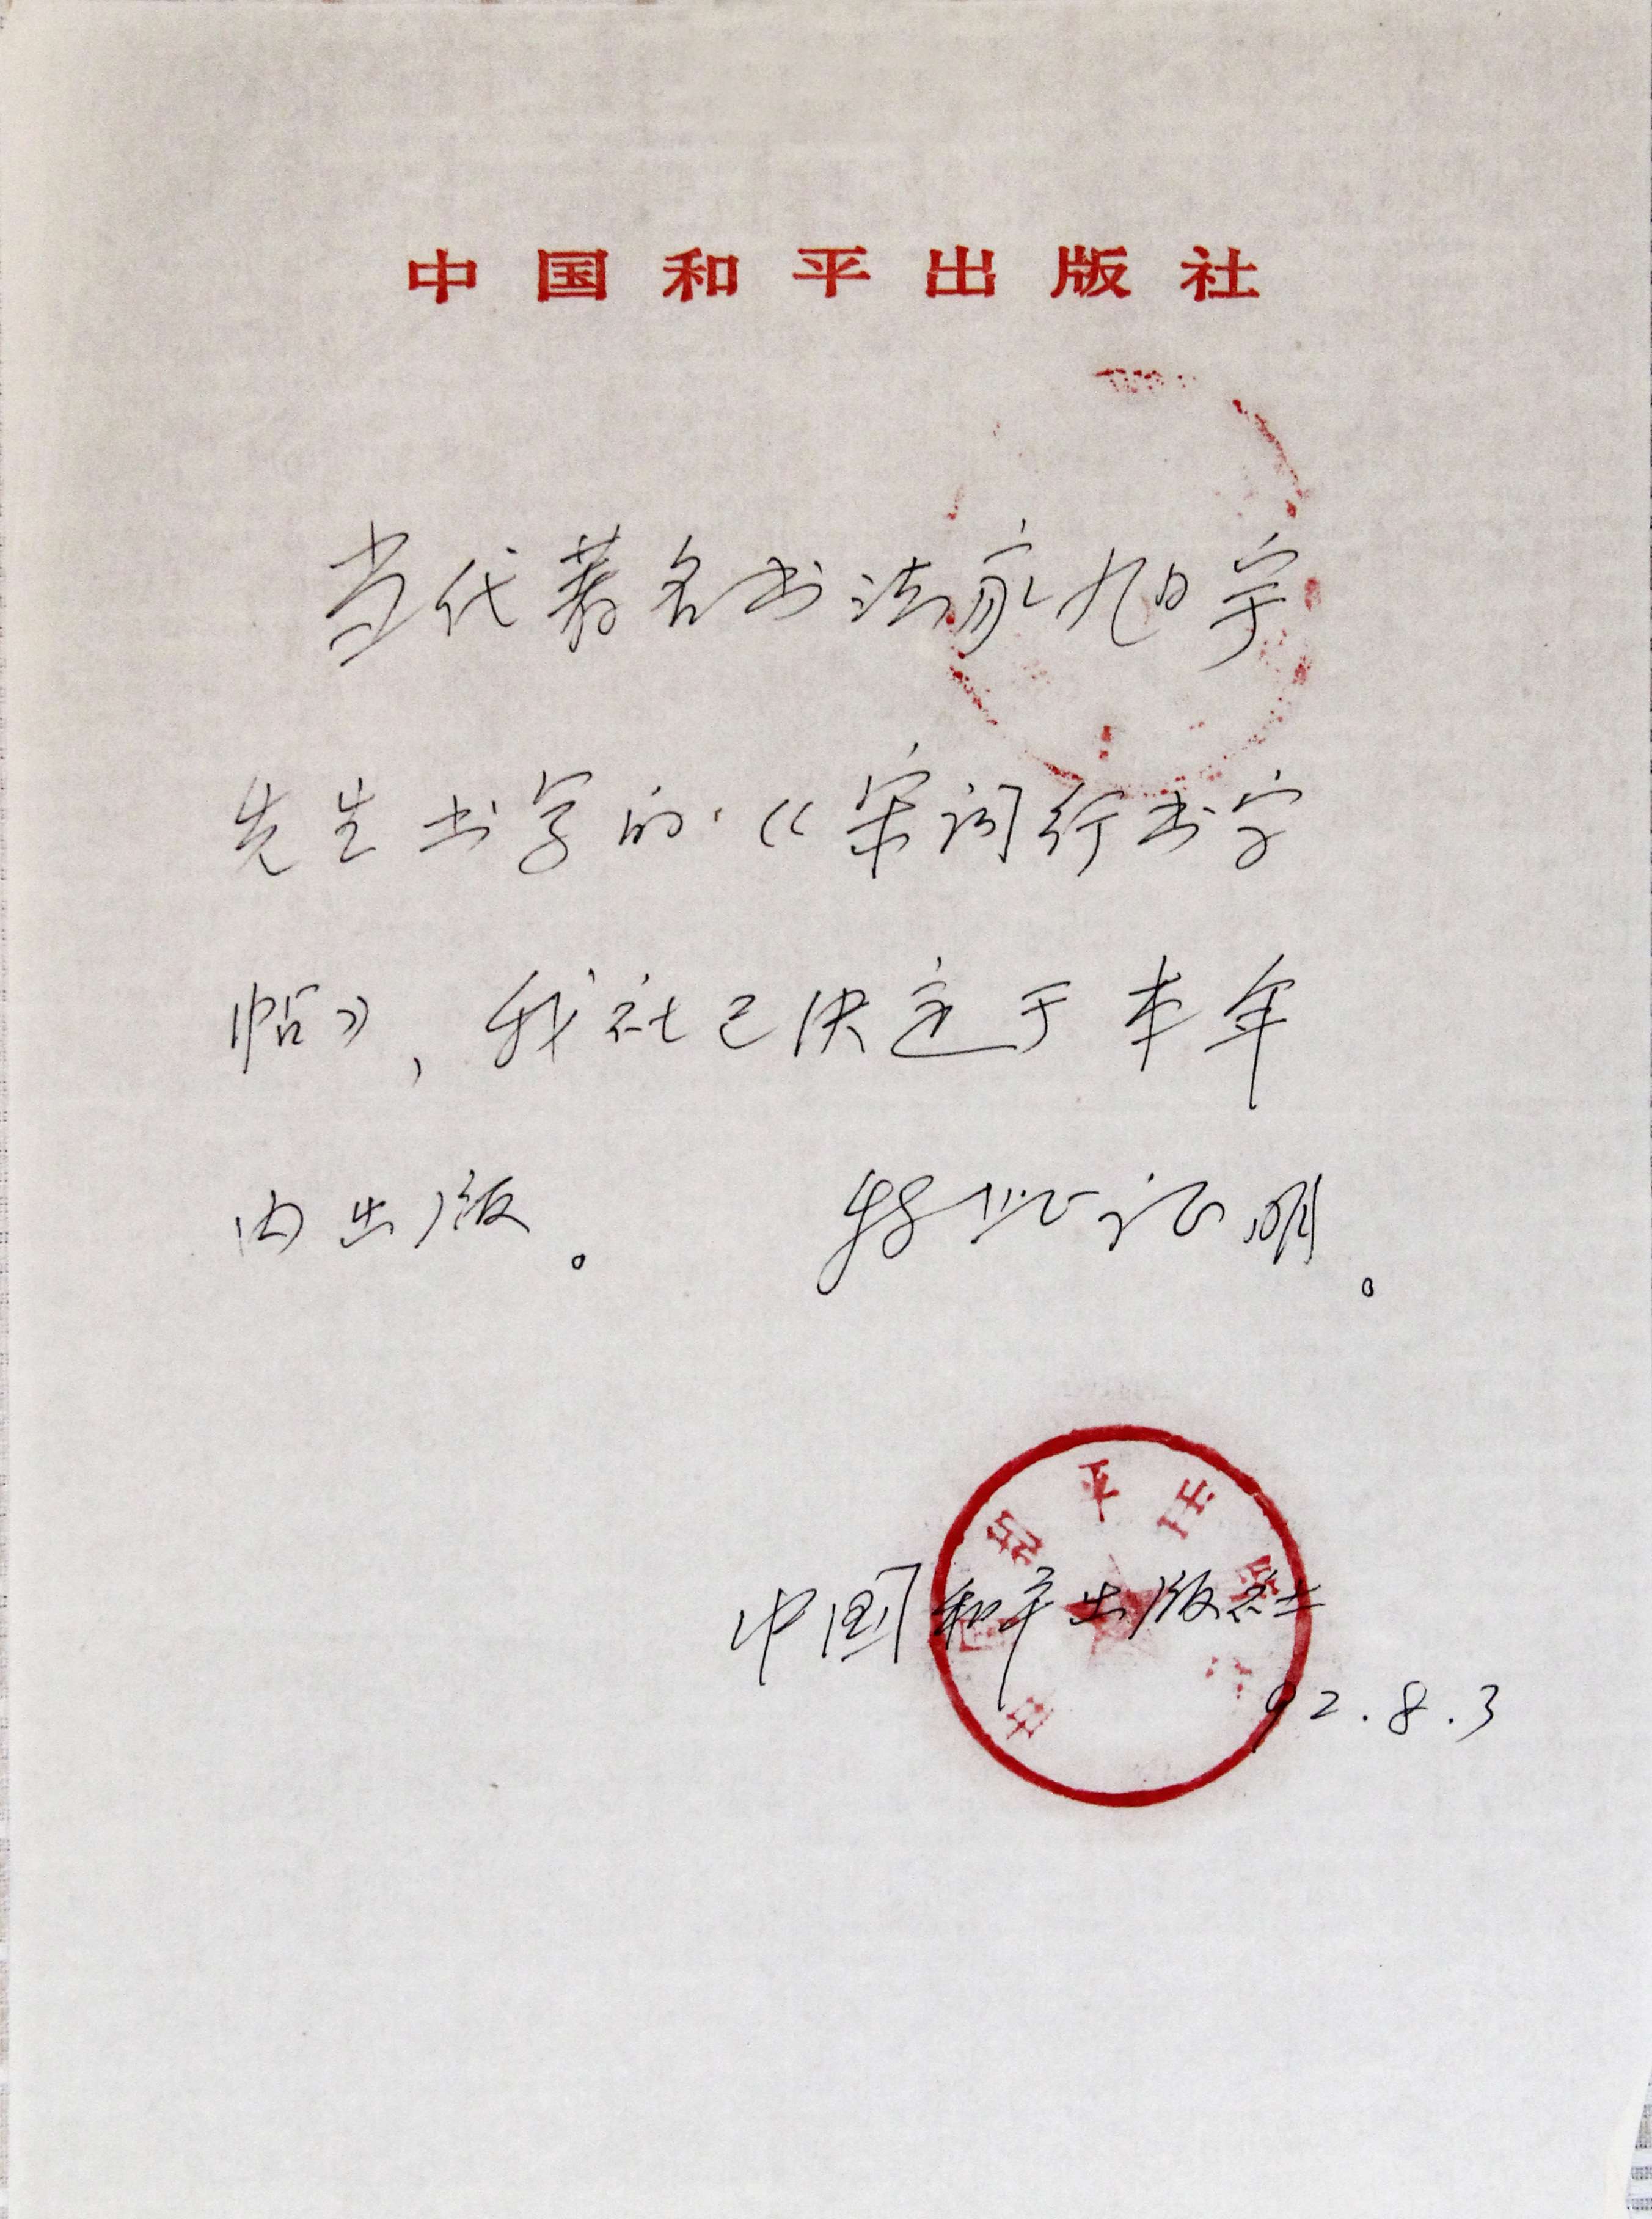 中国和平出版社
当代著名书法家旭宇
先生书写的《宋词行书字
帖》，我社已决定于本年
内出版。 特此证明。
中国和平出版社
92.8.3
中国和平出版社